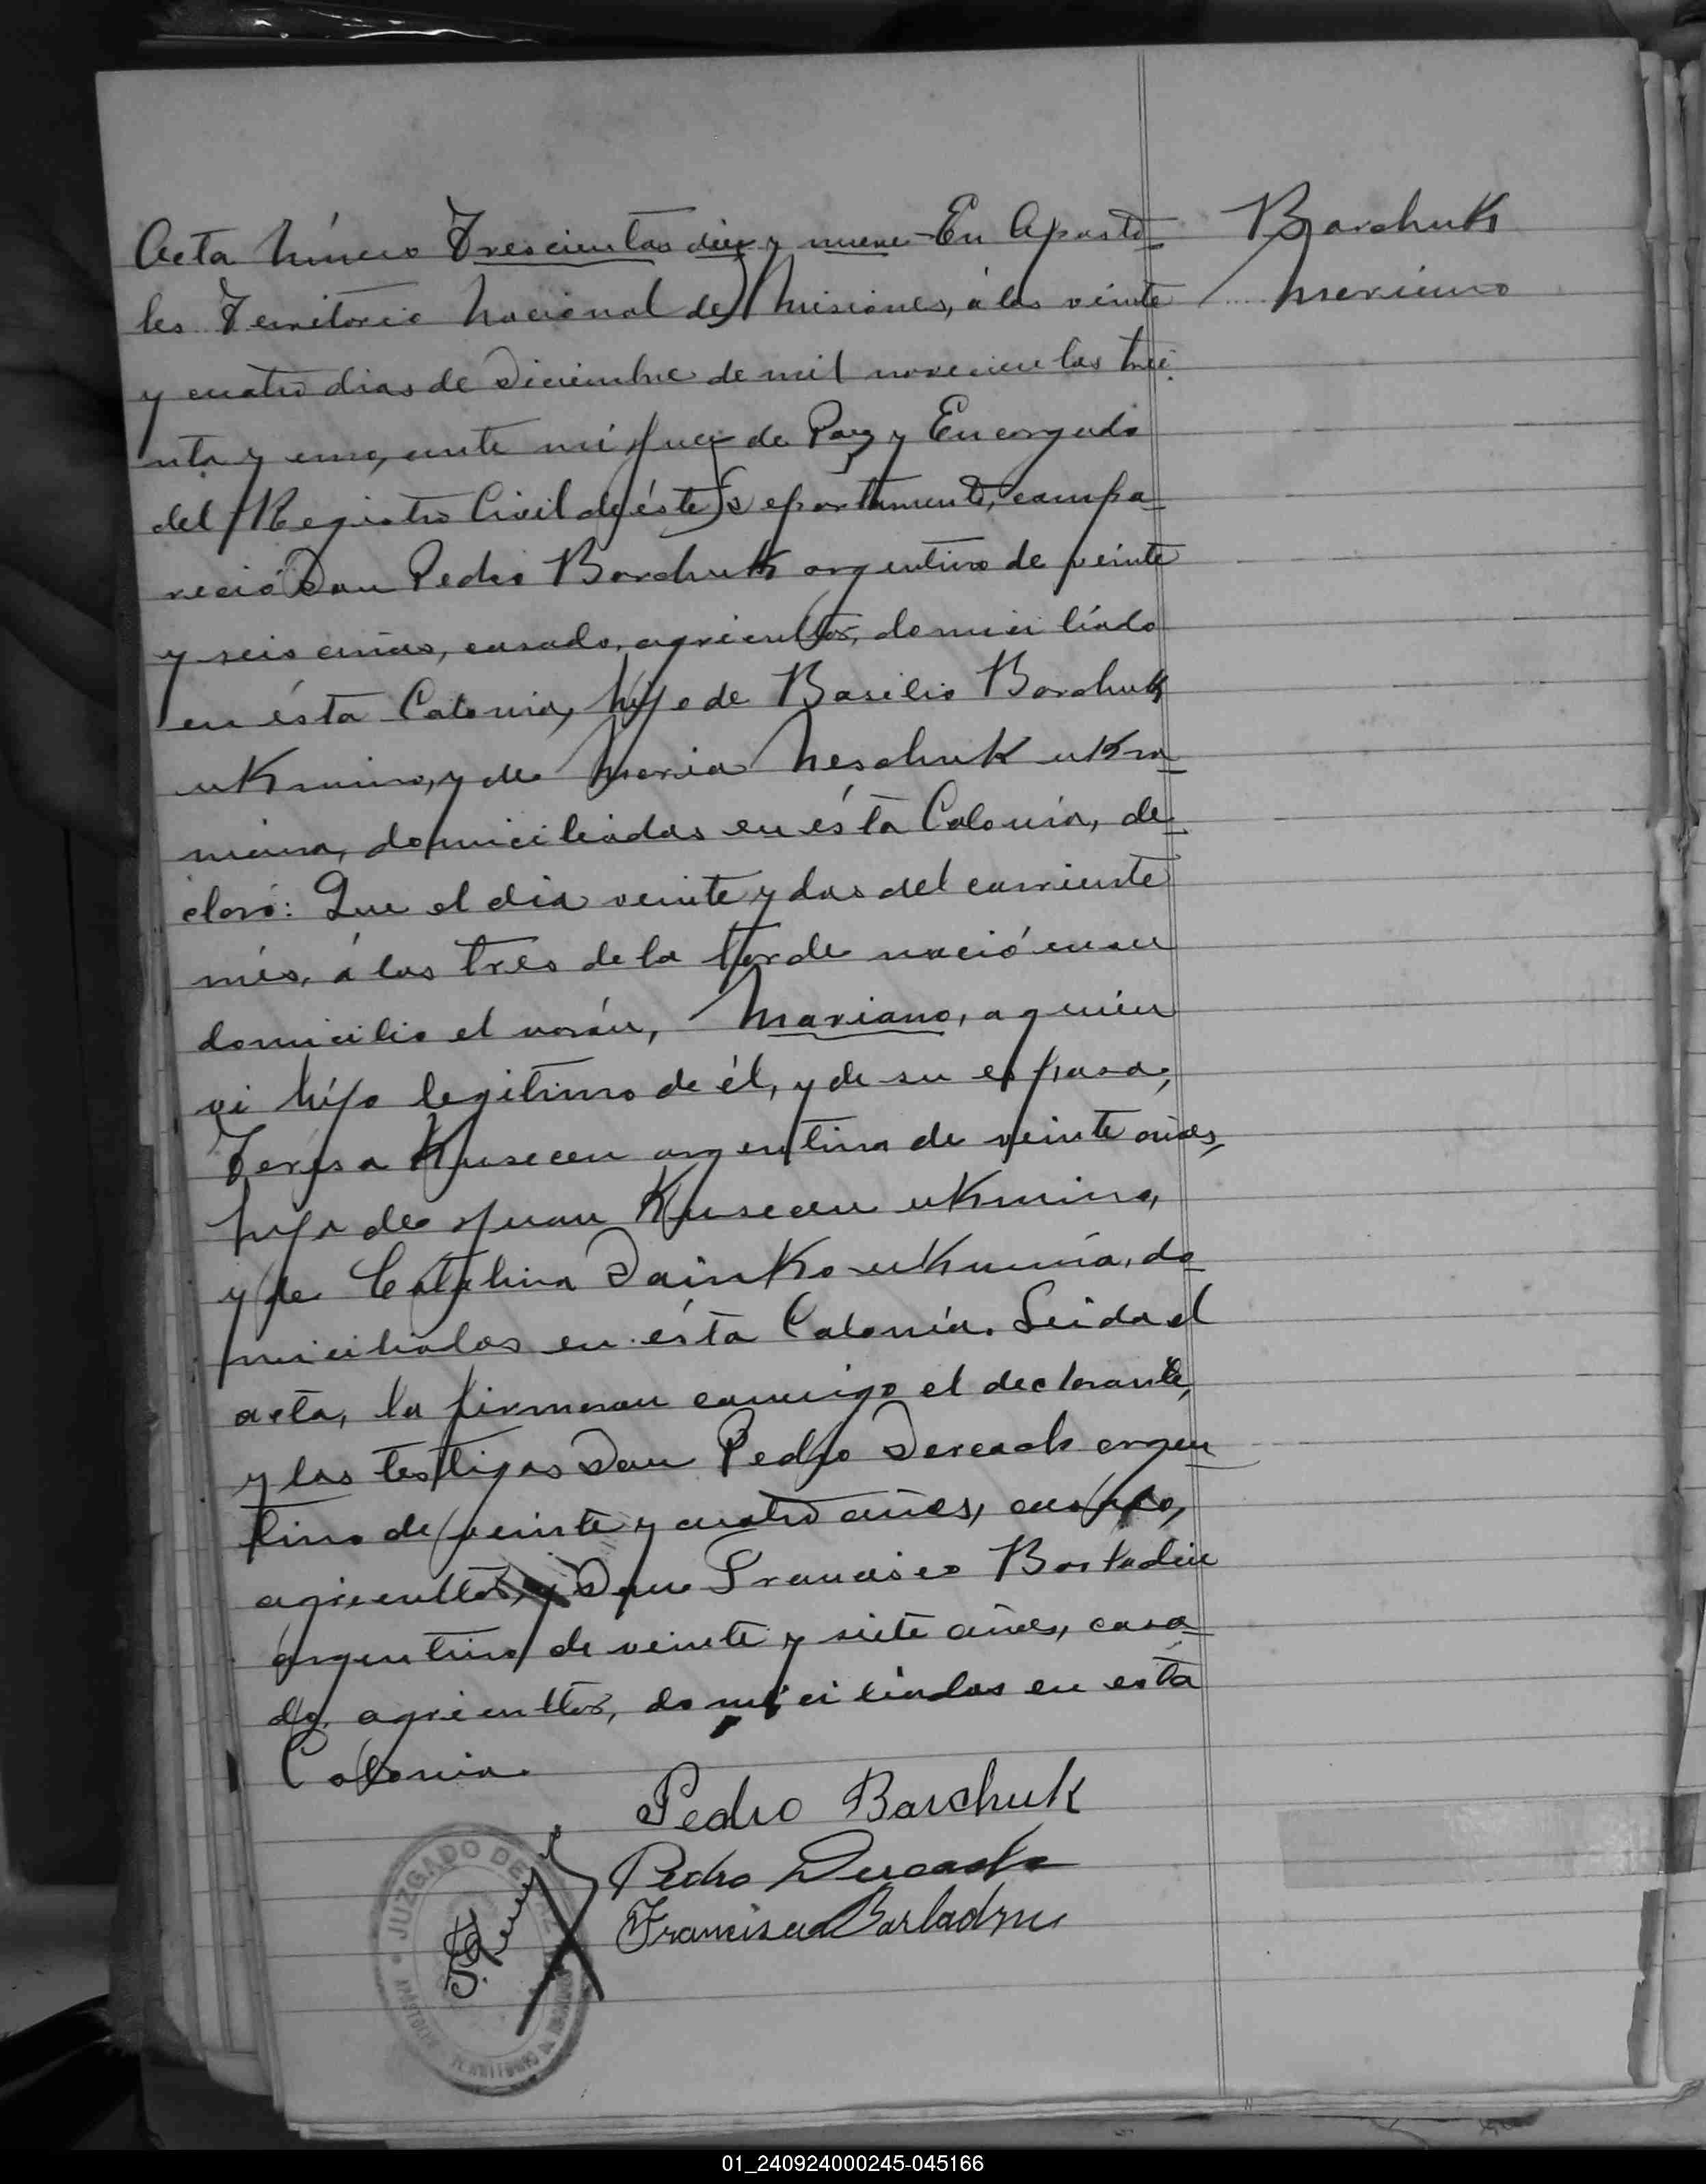 Acta Número Trescientos diez y nueve - En Aposto=
les Territorio Nacional de Misiones, á los veinte
y cuatro dias de Diciembre de mil novecientos trei
nta y uno, ante mi Juez de Paz y Encargado
del Registro Civil de éste Departamento, compa=
reció Don Pedro Barchuk argentino de veinte
y seis años, casado, agricultor, domiciliado
en ésta Colonia, hijo de Basilio Barchuk
ukraino, y de Maria Meschuk ukra=
niana, domiciliados en ésta Colonia, de=
claró: Que el dia veinte y dos del corriente
més, á las tres de la tarde nació en su
domicilio el varón, Mariano, a quién
vi hijo legitimo de él, y de su esposa,
Teresa Kuseceu argentina de veinte años,
hija de Juan Kuseceu ukraino,
y de Catalina Dainko ukrania, do=
miciliados en ésta Colonia. Leida el
acta, la firmaron conmigo el declarante,
y los testigos Don Pedro argen=
tino de veinte y cuatro años, casado,
agricultor, y Don Francisco Barladin
argentino de veinte y siete años, casa=
do, agricultor, domiciliados en esta
Colonia.
Barchuk
Mariano
Pedro Barchuk
Pedro
Francisco
JUZGADO DE PAZ
APÓSTOLES
01_240924000245-045166